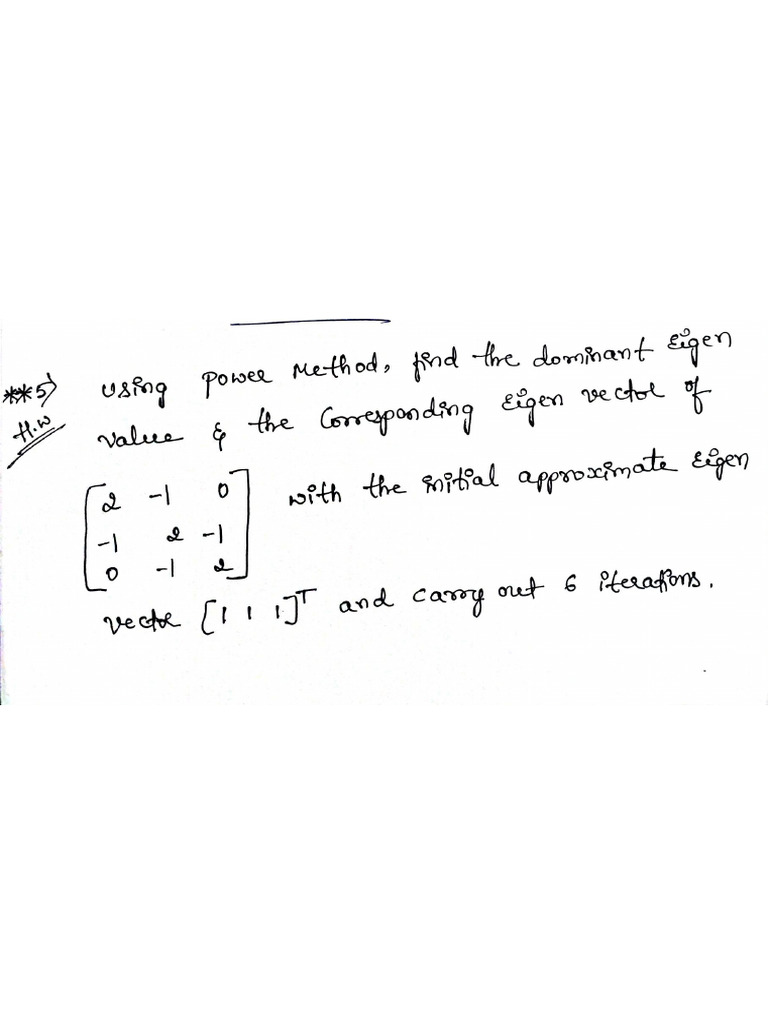 **5) Using Power Method, find the dominant Eigen
H.W value & the Corresponding Eigen vector of
[2 -1 0
-1 2 -1
0 -1 2] with the initial approximate Eigen
vector [1 1 1]T and carry out 6 iterations.